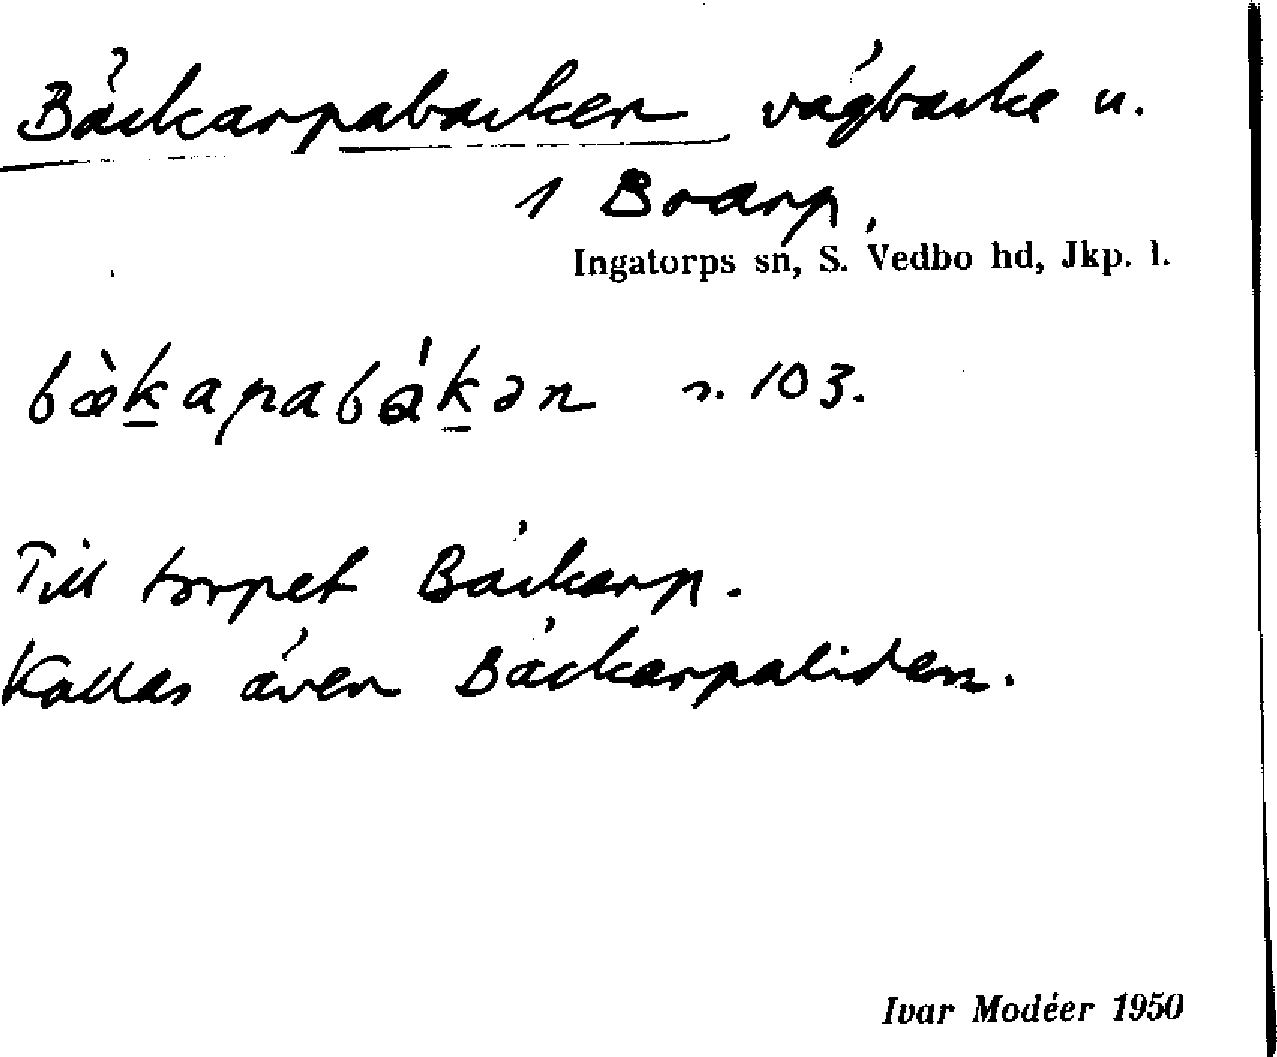 Bäckarpabacken vägbacke u.
1 Boarp.
Ingatorps sn, S. Vedbo hd, Jkp. l.
bæ̀k̲apabák̲ən r. 103.
Till torpet Bäckarp.
Kallas även Bäckarpaliden.
Ivar Modéer 1950